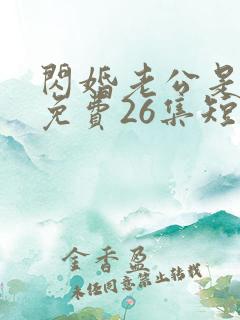 閃婚老公是
免費26集短
金香盈
未经同意禁止转载